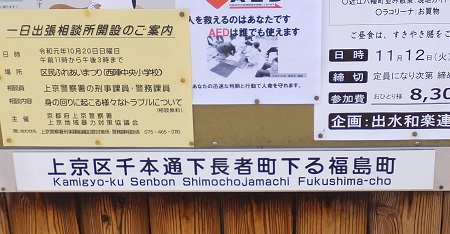 一日出張相談所開設のご案内
日時 令和元年10月20日日曜日
午前11時から午後3時まで
場所 区民ふれあいまつり(西陣中央小学校)
相談員 上京警察署の刑事課員・警務課員
相談内容 身の回りに起こる様々なトラブルについて
(相談無料)
主催 京都府上京警察署
上京地域暴力対策協議会
人を救えるのはあなたです
AEDは誰でも使えます
あなたの迅速な判断と行動で人命を守れます。
○ラコリーナ:お買物
ご昼食は、すきやき膳をご
日時 11月12日(火)
締切 定員になり次第 締め
参加費 おひとり様 8,30
企画:出水和楽連
上京区千本通下長者町下る福島町
Kamigyo-ku Senbon Shimochojamachi Fukushima-cho